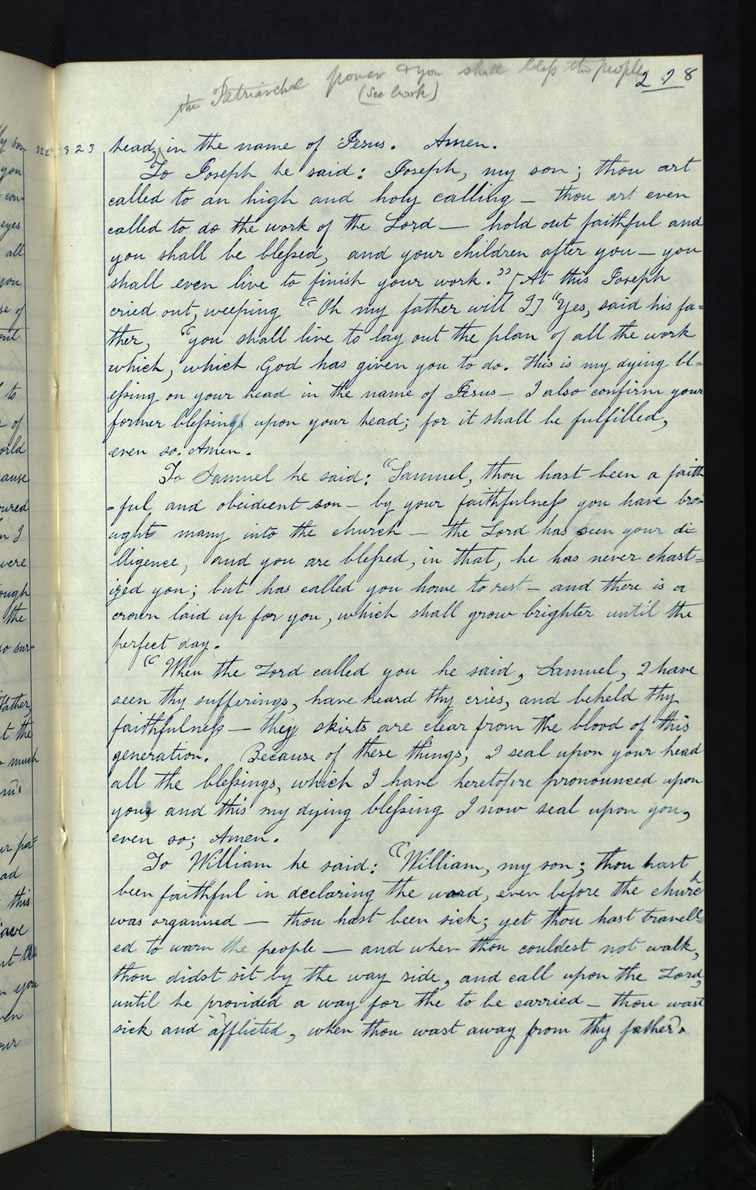 the Patriarchal power & you shall bless the people
(See book)
228
323 head, in the name of Jesus. Amen.
To Joseph he said: Joseph, my son; thou art
called to an high and holy calling — thou art even
called to do the work of the Lord — hold out faithful and
you shall be blessed, and your children after you — you
shall even live to finish your work." [At this Joseph
cried out, weeping "Oh my father will I] "Yes, said his fa=
ther, "you shall live to lay out the plan of all the work
which, which God has given you to do. This is my dying bl=
essing on your head in the name of Jesus — I also confirm your
former blessings upon your head; for it shall be fulfilled,
even so, Amen.
To Samuel he said: "Samuel, thou hast been a faith
=ful, and obeidient son — by your faithfulness you have bro=
ught many into the church — the Lord has seen your di
lligence, and you are blessed, in that, he has never chast=
ized you; but has called you home to rest — and there is a
crown laid up for you, which shall grow brighter until the
perfect day.
"When the Lord called you he said, Samuel, I have
seen thy sufferings, have heard thy cries, and beheld thy
faithfulness — they skirts are clear from the blood of this
generation. Because of these things, I seal upon your head
all the blessings, which I have heretofire pronounced upon
you, and this my dying blessing I now seal upon you,
even so; Amen.
To William he said: "William, my son; thou hast
been faithful in declaring the word, even before the church
was organised — thou hast been sick; yet thou hast travell=
ed to warn the people — and when thou couldest not walk,
thou didst sit by the way side, and call upon the Lord,
until he provided a way for the to be carried — thou wast
sick and afflicted, when thou wast away from thy father's